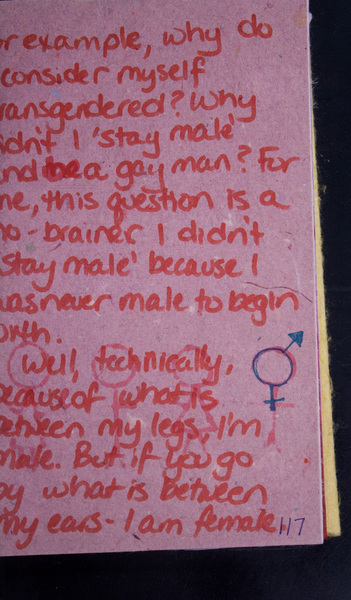 or example, why do
consider myself
ransgendered? Why
idn't I 'stay male'
and be a gay man? For
me, this question is a
no-brainer I didn't
'stay male' because I
was never male to begin
with.
Well, technically,
because of what is
between my legs, I'm
male. But if you go
by what is between
my ears - I am female
117